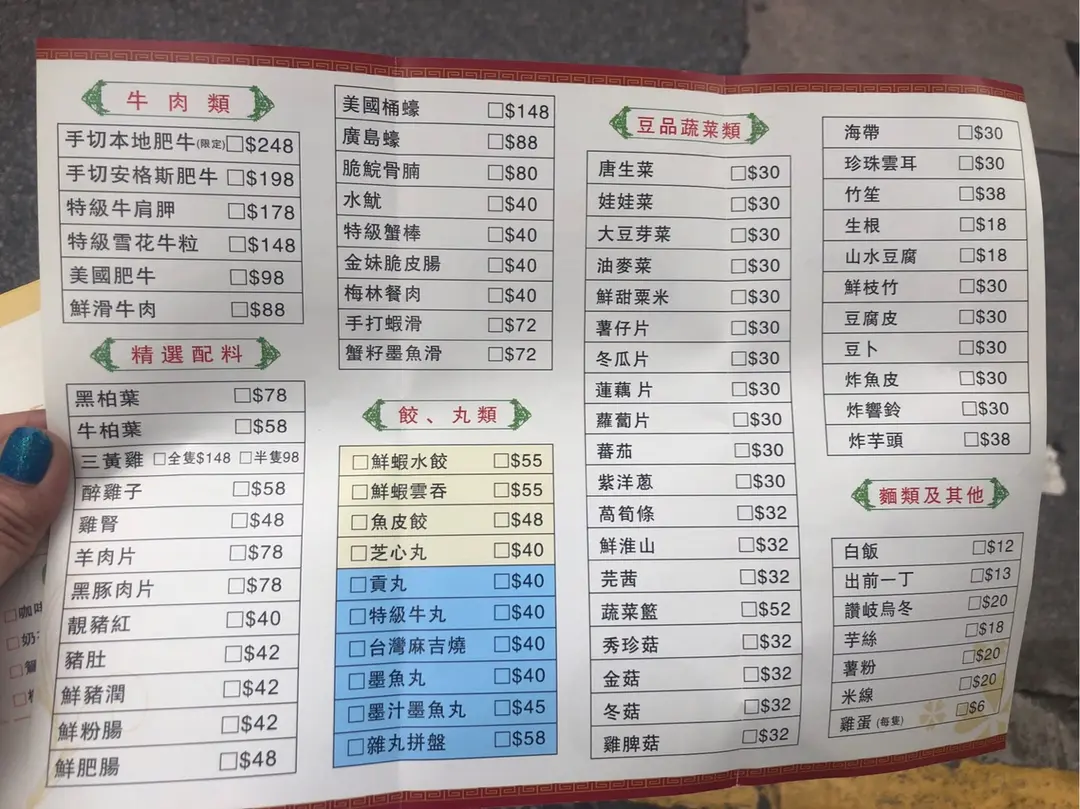 牛肉類
手切本地肥牛(限定)□$248
手切安格斯肥牛□$198
特級牛肩胛□$178
特級雪花牛粒□$148
美國肥牛□$98
鮮滑牛肉□$88
精選配料
黑柏葉□$78
牛柏葉□$58
三黃雞□全隻$148 □半隻98
醉雞子□$58
雞腎□$48
羊肉片□$78
黑豚肉片□$78
靚豬紅□$40
豬肚□$42
鮮豬潤□$42
鮮粉腸□$42
鮮肥腸□$48
美國桶蠔□$148
廣島蠔□$88
脆鯇骨腩□$80
水魷□$40
特級蟹棒□$40
金妹脆皮腸□$40
梅林餐肉□$40
手打蝦滑□$72
蟹籽墨魚滑□$72
餃、丸類
□鮮蝦水餃□$55
□鮮蝦雲吞□$55
□魚皮餃□$48
□芝心丸□$40
□貢丸□$40
□特級牛丸□$40
□台灣麻吉燒□$40
□墨魚丸□$40
□墨汁墨魚丸□$45
□雜丸拼盤□$58
豆品蔬菜類
唐生菜□$30
娃娃菜□$30
大豆芽菜□$30
油麥菜□$30
鮮甜粟米□$30
薯仔片□$30
冬瓜片□$30
蓮藕片□$30
蘿蔔片□$30
蕃茄□$30
紫洋蔥□$30
萵筍條□$32
鮮淮山□$32
芫茜□$32
蔬菜籃□$52
秀珍菇□$32
金菇□$32
冬菇□$32
雞脾菇□$32
海帶□$30
珍珠雲耳□$30
竹笙□$38
生根□$18
山水豆腐□$18
鮮枝竹□$30
豆腐皮□$30
豆卜□$30
炸魚皮□$30
炸響鈴□$30
炸芋頭□$38
麵類及其他
白飯□$12
出前一丁□$13
讚岐烏冬□$20
芋絲□$18
薯粉□$20
米線□$20
雞蛋(每隻)□$6
□咖
□奶